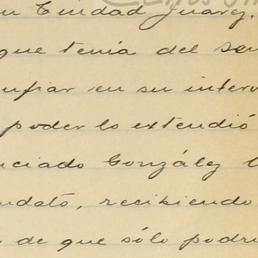 en Ciudad Juarez,
que tenia del sen
nfiar en su interv
poder lo extendió
nciado González
ndato, recibiendo
de que sólo podr